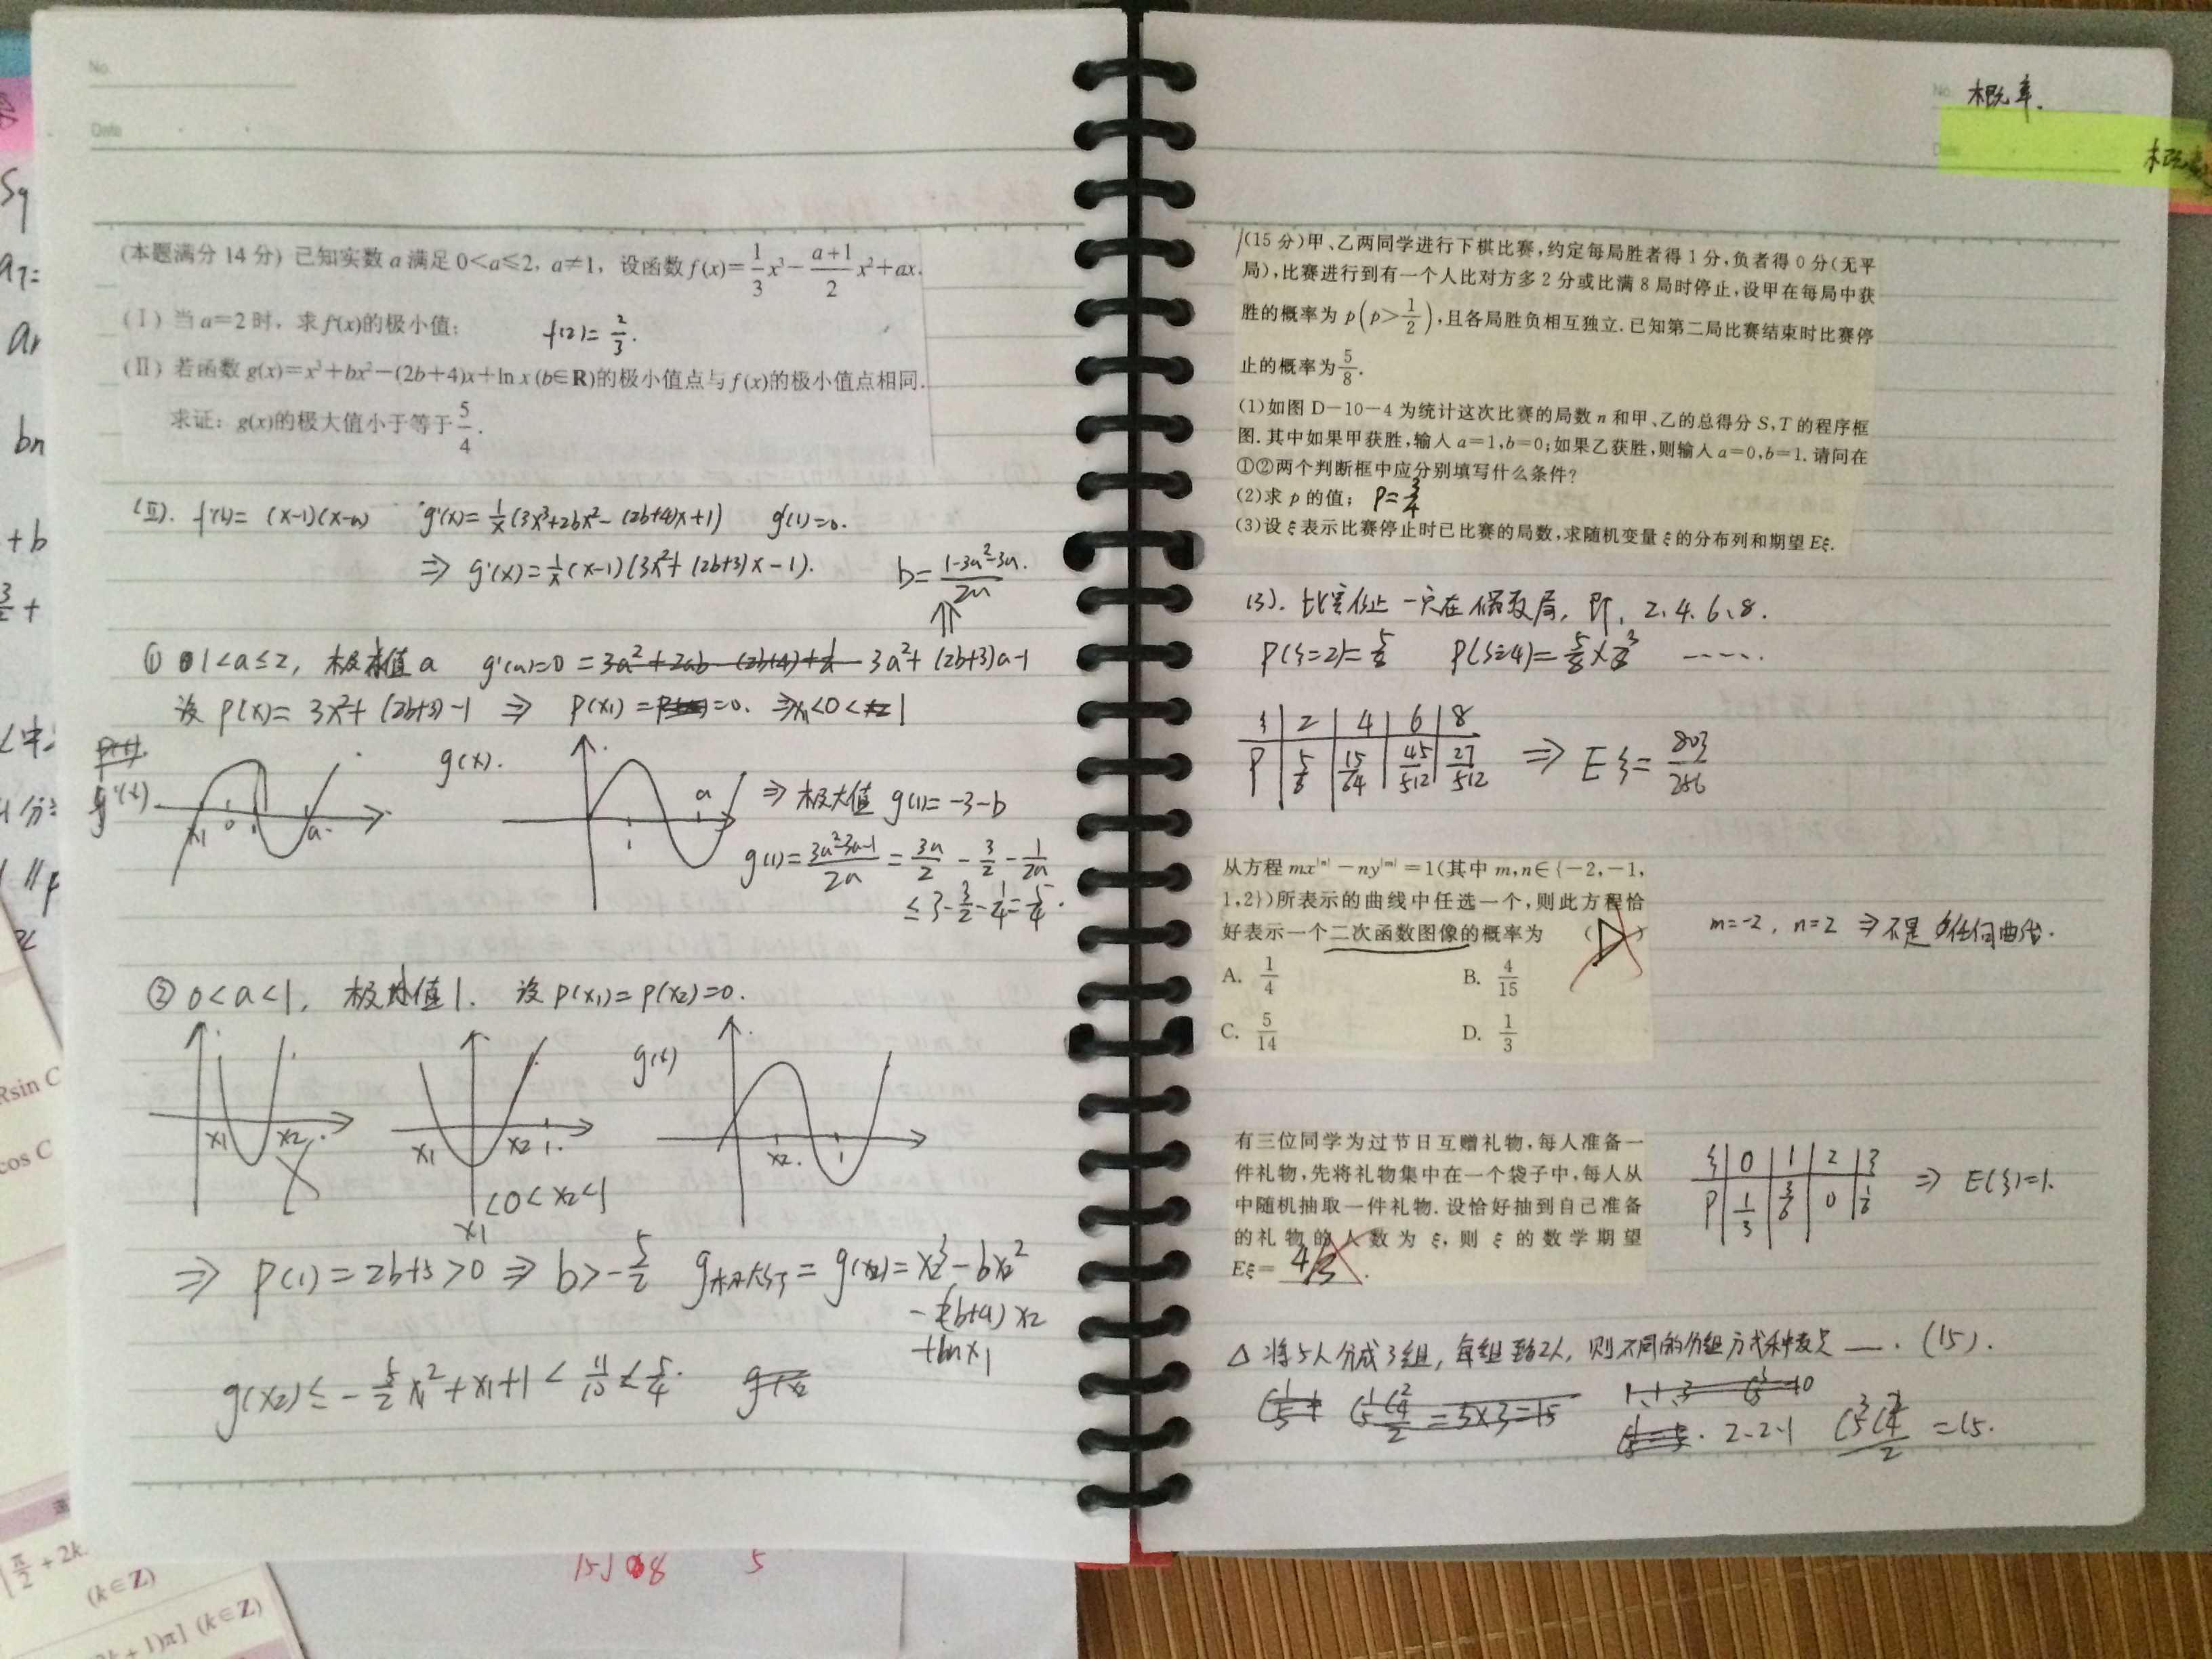 No.
Date
(本题满分 14 分) 已知实数 a 满足 0<a≤2, a≠1, 设函数 f(x)=1/3x³-(a+1)/2x²+ax.
(Ⅰ) 当 a=2 时, 求 f(x)的极小值;
f(2)=2/3.
(Ⅱ) 若函数 g(x)=x³+bx²-(2b+4)x+ln x (b∈R)的极小值点与 f(x)的极小值点相同.
求证: g(x)的极大值小于等于5/4.
(Ⅱ). f'(x)= (x-1)(x-a) g'(x)=1/x(3x³+2bx²-(2b+4)x+1) g'(1)=0.
⇒ g'(x)=1/x(x-1)(3x²+(2b+3)x-1). b=(1-3a²-3a)/2a
① 1<a≤2, 极小值a g'(a)=0 = 3a²+(2b+3)a-1
设 p(x)= 3x²+(2b+3)-1 ⇒ p(x1)=0. ⇒x1<0<1
g'(x)
x1 0 1 a
g(x).
1 a
⇒ 极大值 g(1)=-3-b
g(1)=(3a²-3a-1)/2a=3a/2-3/2-1/2a
≤3-3/2-1/4=5/4.
② 0<a<1, 极小值1. 设 p(x1)=p(x2)=0.
x1 x2
x1 x2 1.
x1<0<x2<1
g(x)
x2. 1
⇒ p(1)=2b+5>0 ⇒ b>-5/2 g极大值=g(x2)=x2³-bx2²
-(2b+4)x2
+lnx1
g(x2)≤-5/2x1²+x1+1<11/10<5/4.
No.
概率.
概率
(15 分)甲、乙两同学进行下棋比赛,约定每局胜者得 1 分,负者得 0 分(无平
局),比赛进行到有一个人比对方多 2 分或比满 8 局时停止,设甲在每局中获
胜的概率为 p(p>1/2),且各局胜负相互独立.已知第二局比赛结束时比赛停
止的概率为5/8.
(1)如图 D-10-4 为统计这次比赛的局数 n 和甲、乙的总得分 S,T 的程序框
图.其中如果甲获胜,输入 a=1,b=0;如果乙获胜,则输入 a=0,b=1.请问在
①②两个判断框中应分别填写什么条件?
(2)求 p 的值; P=3/4
(3)设 ξ 表示比赛停止时已比赛的局数,求随机变量 ξ 的分布列和期望 Eξ.
(3). 比赛停止一定在偶数局, 即, 2、4、6、8.
P(ξ=2)=5/8 P(ξ=4)=5/8×3/8 ······
ξ 2 4 6 8
P 5/8 15/64 45/512 27/512 ⇒ Eξ=803/256
从方程 mx^|n|-ny^|m|=1(其中 m,n∈{-2,-1,
1,2})所表示的曲线中任选一个,则此方程恰
好表示一个二次函数图像的概率为 (D)
m=-2, n=2 ⇒ 不是任何曲线.
A. 1/4 B. 4/15
C. 5/14 D. 1/3
有三位同学为过节日互赠礼物,每人准备一
件礼物,先将礼物集中在一个袋子中,每人从
中随机抽取一件礼物.设恰好抽到自己准备
的礼物的人数为 ξ,则 ξ 的数学期望
Eξ= 4/3.
ξ 0 1 2 3
P 1/3 3/6 0 1/6 ⇒ E(ξ)=1.
△ 将5人分成3组, 每组至多2人, 则不同的分组方式种数是 —. (15).
2-2-1 =15.
Rsin C
cos C
(k∈Z)
+1)π] (k∈Z)